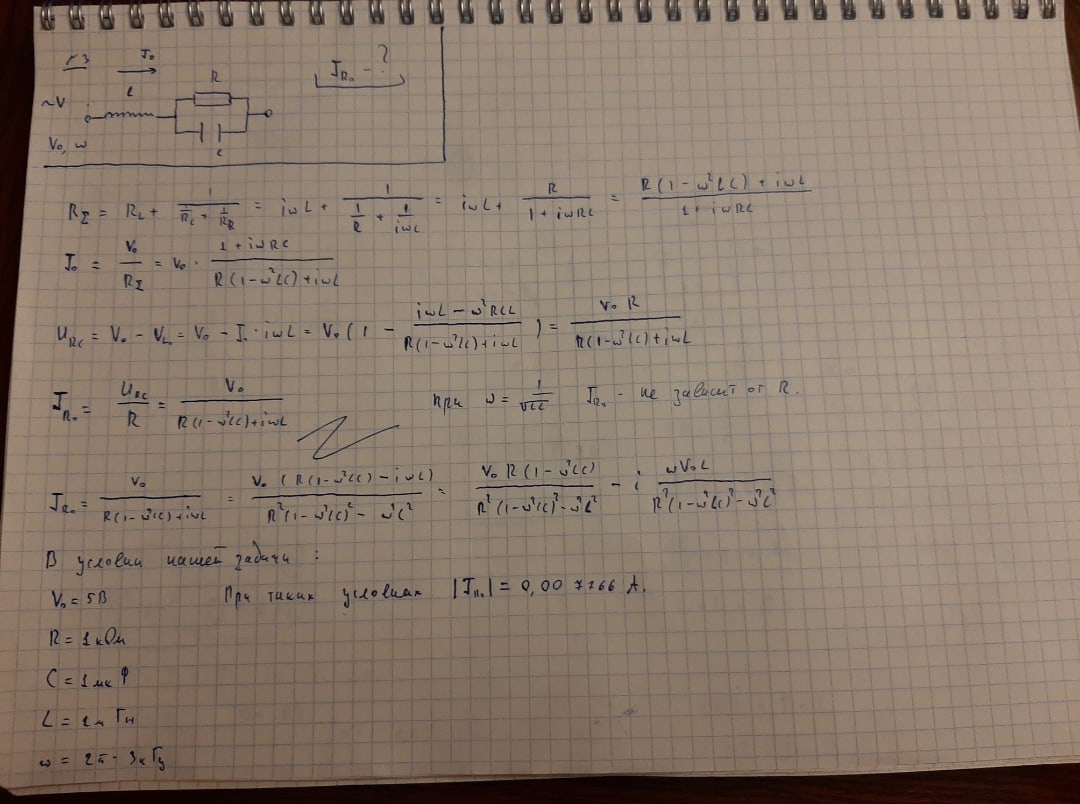 №3 I₀ I_R₀ - ?
L R
~V
V₀, ω C
R_Σ = R_L + 1/(1/R_C + 1/R_R) = iωL + 1/(1/R + 1/(1/iωC)) = iωL + R/(1 + iωRC) = (R(1-ω²LC) + iωL)/(1 + iωRC)
I₀ = V₀/R_Σ = V₀ · (1 + iωRC)/(R(1-ω²LC) + iωL)
U_RC = V₀ - V_L = V₀ - I₀ · iωL = V₀(1 - (iωL - ω²RCL)/(R(1-ω²LC)+iωL)) = V₀R/(R(1-ω²LC)+iωL)
I_R₀ = U_RC/R = V₀/(R(1-ω²LC)+iωL) при ω = 1/√LC I_R₀ - не зависит от R.
I_R₀ = V₀/(R(1-ω²LC)+iωL) = V₀(R(1-ω²LC) - iωL)/(R²(1-ω²LC)² - ω²L²) = V₀R(1-ω²LC)/(R²(1-ω²LC)² - ω²L²) - i ωV₀L/(R²(1-ω²LC)² - ω²L²)
В условии нашей задачи :
V₀ = 5В При таких условиях |I_R₀| = 0,007766 А.
R = 1кОм
C = 1мкФ
L = 1м Гн
ω = 2π · 3кГц